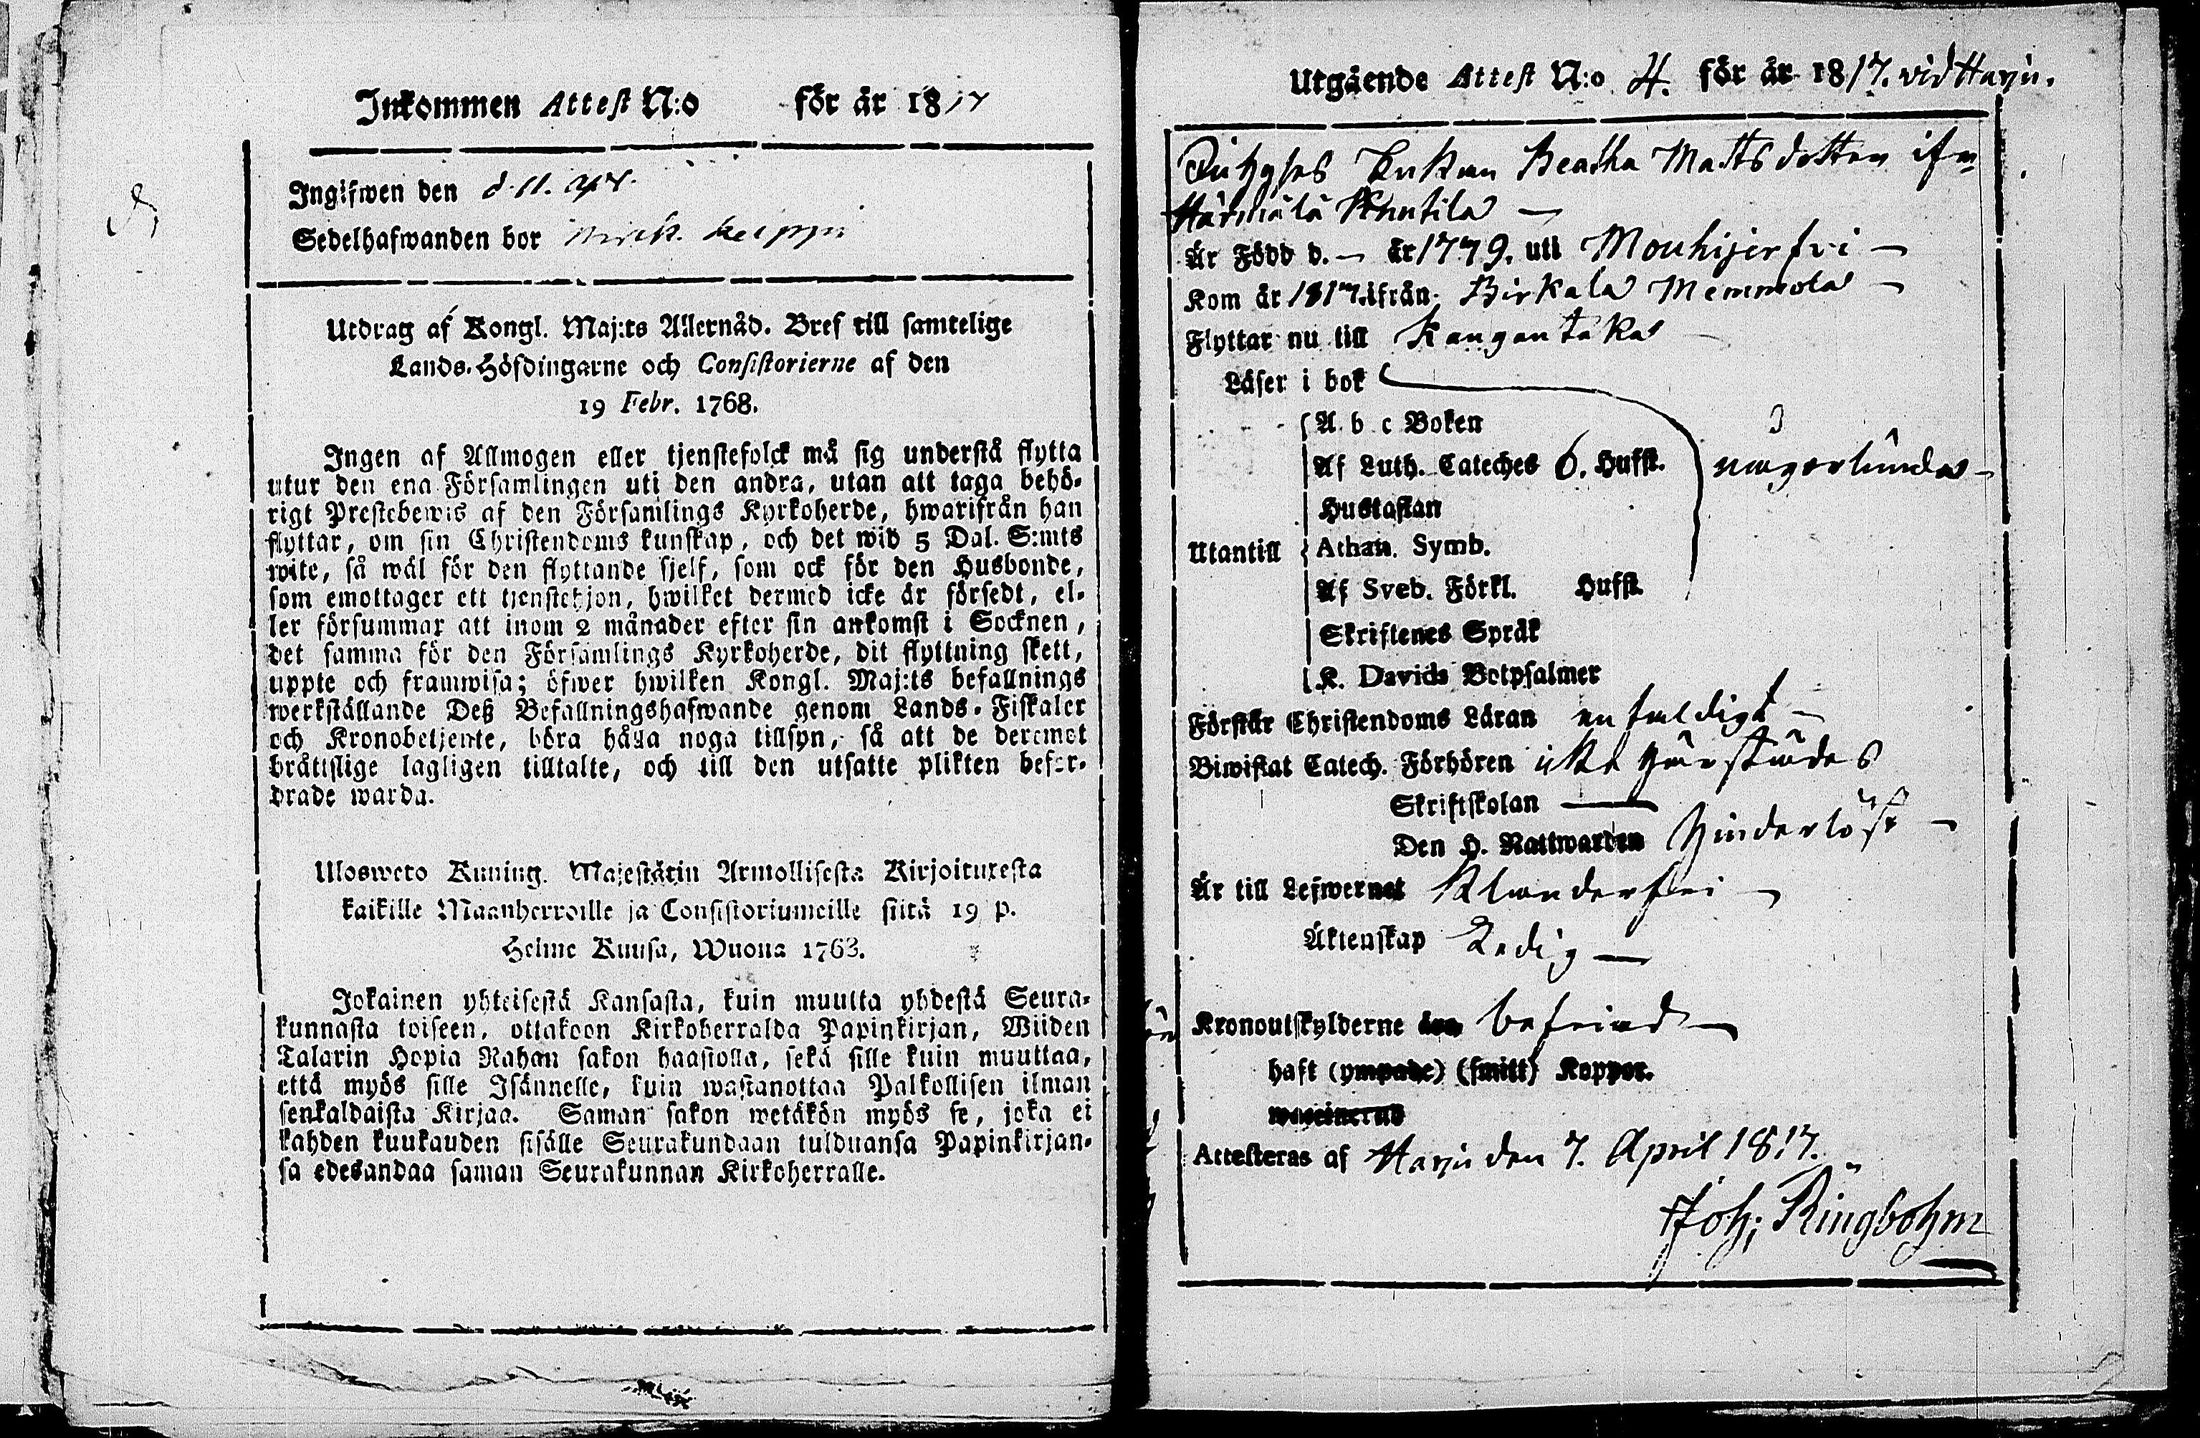 Inkommen Attest N:o för år 1817
Ingifwen den d. 11. apr.
Sedelhafwanden bor
Utdrag af Kongl. Maj:ts Allernåd. Bref till samtelige
Lands-Höfdingarne och Consistorierne af den
19 Febr. 1768.
Ingen af Allmogen eller tjenstefolck må sig understå flytta
utur den ena Församlingen uti den andra, utan att taga behö-
rigt Prestebewis af den Församlings Kyrkoherde, hwarifrån han
flyttar, om sin Christendoms kunskap, och det wid 5 Dal. S:mts
wite, så wäl för den flyttande sjelf, som ock för den Husbonde,
som emottager ett tjenstehjon, hwilket dermed icke är försedt, el-
ler försummar att inom 2 månader efter sin ankomst i Socknen,
det samma för den Församlings Kyrkoherde, dit flyttning skett,
uppte och framwisa; öfwer hwilken Kongl. Maj:ts befallnings
werkställande Deß Befallningshafwande genom Lands-Fiskaler
och Kronobetjente, böra hålla noga tillsyn, så att de deremot
bråttslige lagligen tilltalte, och till den utsatte plikten befor-
drade warda.
Ulosweto Kuning. Majestätin Armollisesta Kirjoituxesta
kaikille Maanherroille ja Consistoriumeille siitä 19 p.
Helme Kuusa, Wuona 1763.
Jokainen yhteisestä Kansasta, kuin muutta yhdestä Seura-
kunnasta toiseen, ottakoon Kirkoherralda Papinkirjan, Wiiden
Talarin Hopia Rahan sakon haastolla, sekä sille kuin muuttaa,
että myös sille Isännelle, kuin wastanottaa Palkollisen ilman
senkaldaista Kirjaa. Saman sakon wetäkön myös se, joka ei
kahden kuukauden sisälle Seurakundaan tulduansa Papinkirjan-
sa edesandaa saman Seurakunnan Kirkoherralle.
Utgående Attest N:o 4. för år 1817. vid Harju.
Enkan Beatha Matts dotter ifrn
Härmälä Knutila
Är Född d. — år 1779. uti Mouhijerfvi
Kom år 1817. ifrån Birkala Memmola
Flyttar nu till Kangantaka
Läser i bok
A b c Boken
Af Luth. Cateches 6. Hufst. någorlunda
Hustaflan
Utantill Athan. Symb.
Af Sveb. Förkl. Hufst.
Skriftenes Språk
K. Davids Botpsalmer
Förstår Christendoms Läran enfaldigt
Biwistat Catech. Förhören icke härstädes
Skriftskolan —
Den H. Nattwarden hinderlöst
Är till Lefwernet klanderfri
Äktenskap Ledig
Kronoutskylderne befriad
haft (ympade) (smitt) Koppor.
waccinerad
Attesteras af Harju den 7. April 1817.
Joh: Ringbohm